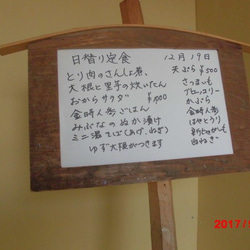 日替り定食
12月19日
とり肉のさんしょ煮、
大根と里芋の炊いたん
おからサラダ ¥900
金時人参ごはん
みぶなのぬか漬け
ミニ温そば(あげ、ねぎ)
ゆず大根がつきます
天ぷら ¥500
さつまいも
ブロッコリー
かぶら
金時人参
はやとうり
白ねぎ
2017/